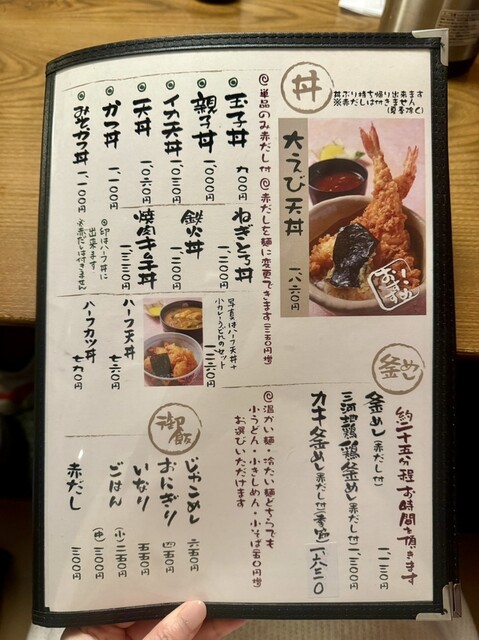 丼
丼ぶり持ち帰り出来ます
※赤だしは付きません
(夏季除く)
大えび天丼 一、八六〇円
おすすめ
◎単品のみ赤だし付 ◎赤だしを麺に変更できます(三五〇円増)
玉子丼 九〇〇円
親子丼 一、〇〇〇円
イカ天丼 一、〇三〇円
天丼 一、〇六〇円
カツ丼 一、一〇〇円
みそカツ丼 一、一〇〇円
ねぎとろ丼
鉄火丼
焼肉キムチ丼 一、二三〇円
◎印はハーフ丼に
出来ます
※赤だしは付きません
写真はハーフ天丼+
小カレーうどんのセット
一、三六〇円
ハーフ天丼 七六〇円
ハーフカツ丼 七九〇円
釜めし
約二十五分程お時間を頂きます
釜めし(赤だし付) 一、二三〇円
三河地鶏釜めし(赤だし付) 一、三〇〇円
カキ釜めし(赤だし付)(季節)
◎温かい麺・冷たい麺どちらでも
小うどん・小きしめん・小そば(五〇円増)
お選びいただけます
御飯
じゃこめし 六五〇円
おにぎり 四五〇円
いなり 五五〇円
ごはん (小)二五〇円
(中)三〇〇円
赤だし 三〇〇円